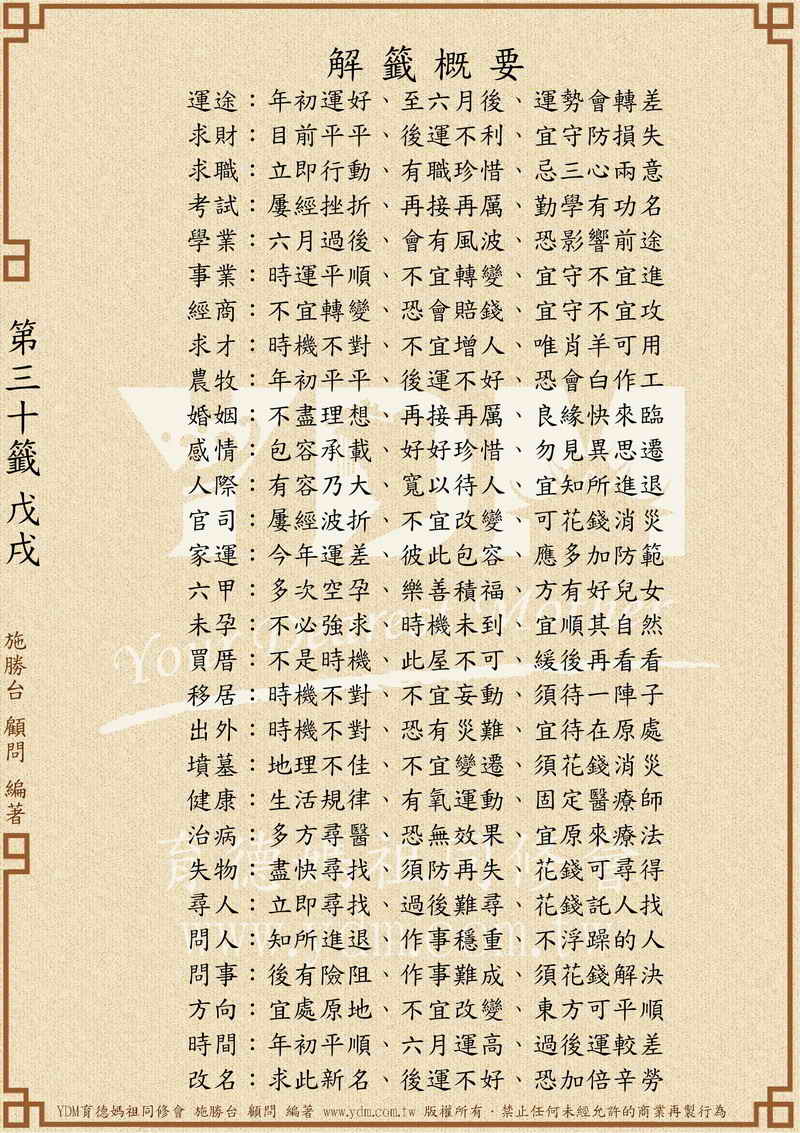 解籤概要
運途：年初運好、至六月後、運勢會轉差
求財：目前平平、後運不利、宜守防損失
求職：立即行動、有職珍惜、忌三心兩意
考試：屢經挫折、再接再厲、勤學有功名
學業：六月過後、會有風波、恐影響前途
事業：時運平順、不宜轉變、宜守不宜進
經商：不宜轉變、恐會賠錢、宜守不宜攻
求才：時機不對、不宜增人、唯肖羊可用
農牧：年初平平、後運不好、恐會白作工
婚姻：不盡理想、再接再厲、良緣快來臨
感情：包容承載、好好珍惜、勿見異思遷
人際：有容乃大、寬以待人、宜知所進退
官司：屢經波折、不宜改變、可花錢消災
家運：今年運差、彼此包容、應多加防範
六甲：多次空孕、樂善積福、方有好兒女
未孕：不必強求、時機未到、宜順其自然
買厝：不是時機、此屋不可、緩後再看看
移居：時機不對、不宜妄動、須待一陣子
出外：時機不對、恐有災難、宜待在原處
墳墓：地理不佳、不宜變遷、須花錢消災
健康：生活規律、有氧運動、固定醫療師
治病：多方尋醫、恐無效果、宜原來療法
失物：盡快尋找、須防再失、花錢可尋得
尋人：立即尋找、過後難尋、花錢託人找
問人：知所進退、作事穩重、不浮躁的人
問事：後有險阻、作事難成、須花錢解決
方向：宜處原地、不宜改變、東方可平順
時間：年初平順、六月運高、過後運較差
改名：求此新名、後運不好、恐加倍辛勞
第三十籤 戊戌
施勝台 顧問 編著
YDM
Your Dearest Mother
育德媽祖同修會
www.ydm.com.tw
YDM育德媽祖同修會 施勝台 顧問 編著 www.ydm.com.tw 版權所有．禁止任何未經允許的商業再製行為